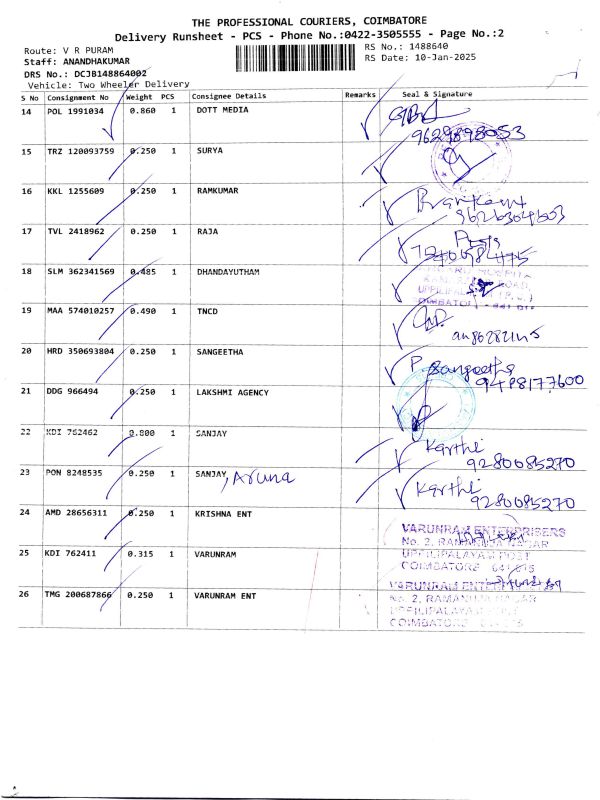 THE PROFESSIONAL COURIERS, COIMBATORE
Delivery Runsheet - PCS - Phone No.:0422-3505555 - Page No.:2
Route: V R PURAM
RS No.: 1488640
Staff: ANANDHAKUMAR
RS Date: 10-Jan-2025
DRS No.: DCJB148864002
Vehicle: Two Wheeler Delivery
S No Consignment No Weight PCS Consignee Details Remarks Seal & Signature
14 POL 1991034 0.860 1 DOTT MEDIA
9629898053
15 TRZ 120093759 0.250 1 SURYA
16 KKL 1255609 0.250 1 RAMKUMAR
9626304603
17 TVL 2418962 0.250 1 RAJA
18 SLM 362341569 0.485 1 DHANDAYUTHAM
19 MAA 574010257 0.490 1 TNCD
20 HRD 350693804 0.250 1 SANGEETHA P Sangeetha
9498177600
21 DDG 966494 0.250 1 LAKSHMI AGENCY
22 KDI 762462 0.800 1 SANJAY Karthi
9280085270
23 PON 8248535 0.250 1 SANJAY, Aruna Karthi
9280085270
24 AMD 28656311 0.250 1 KRISHNA ENT
VARUNRAM ENTERPRISERS
No. 2, RAMANUJA NAGAR
25 KDI 762411 0.315 1 VARUNRAM UPPILIPALAYAM POST
COIMBATORE 641 015
26 TMG 200687866 0.250 1 VARUNRAM ENT
No. 2, RAMANUJA NAGAR
UPPILIPALAYAM
COIMBATORE